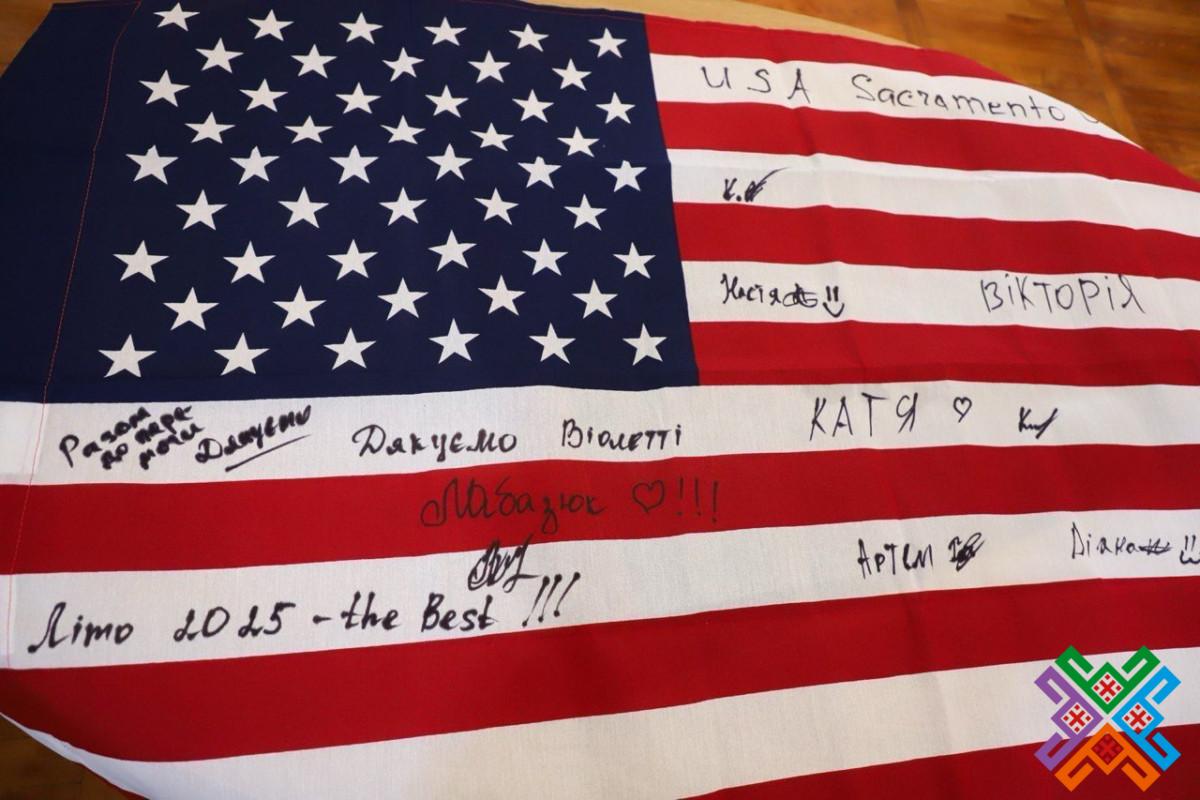 USA Sacramento
К.
Настя
ВІКТОРІЯ
Разом до пере-
моги
Дякуємо
Дякуємо Віолетті
КАТЯ ♡
Лабазюк ♡!!!
Артем
Діана
Літо 2025 - the Best !!!